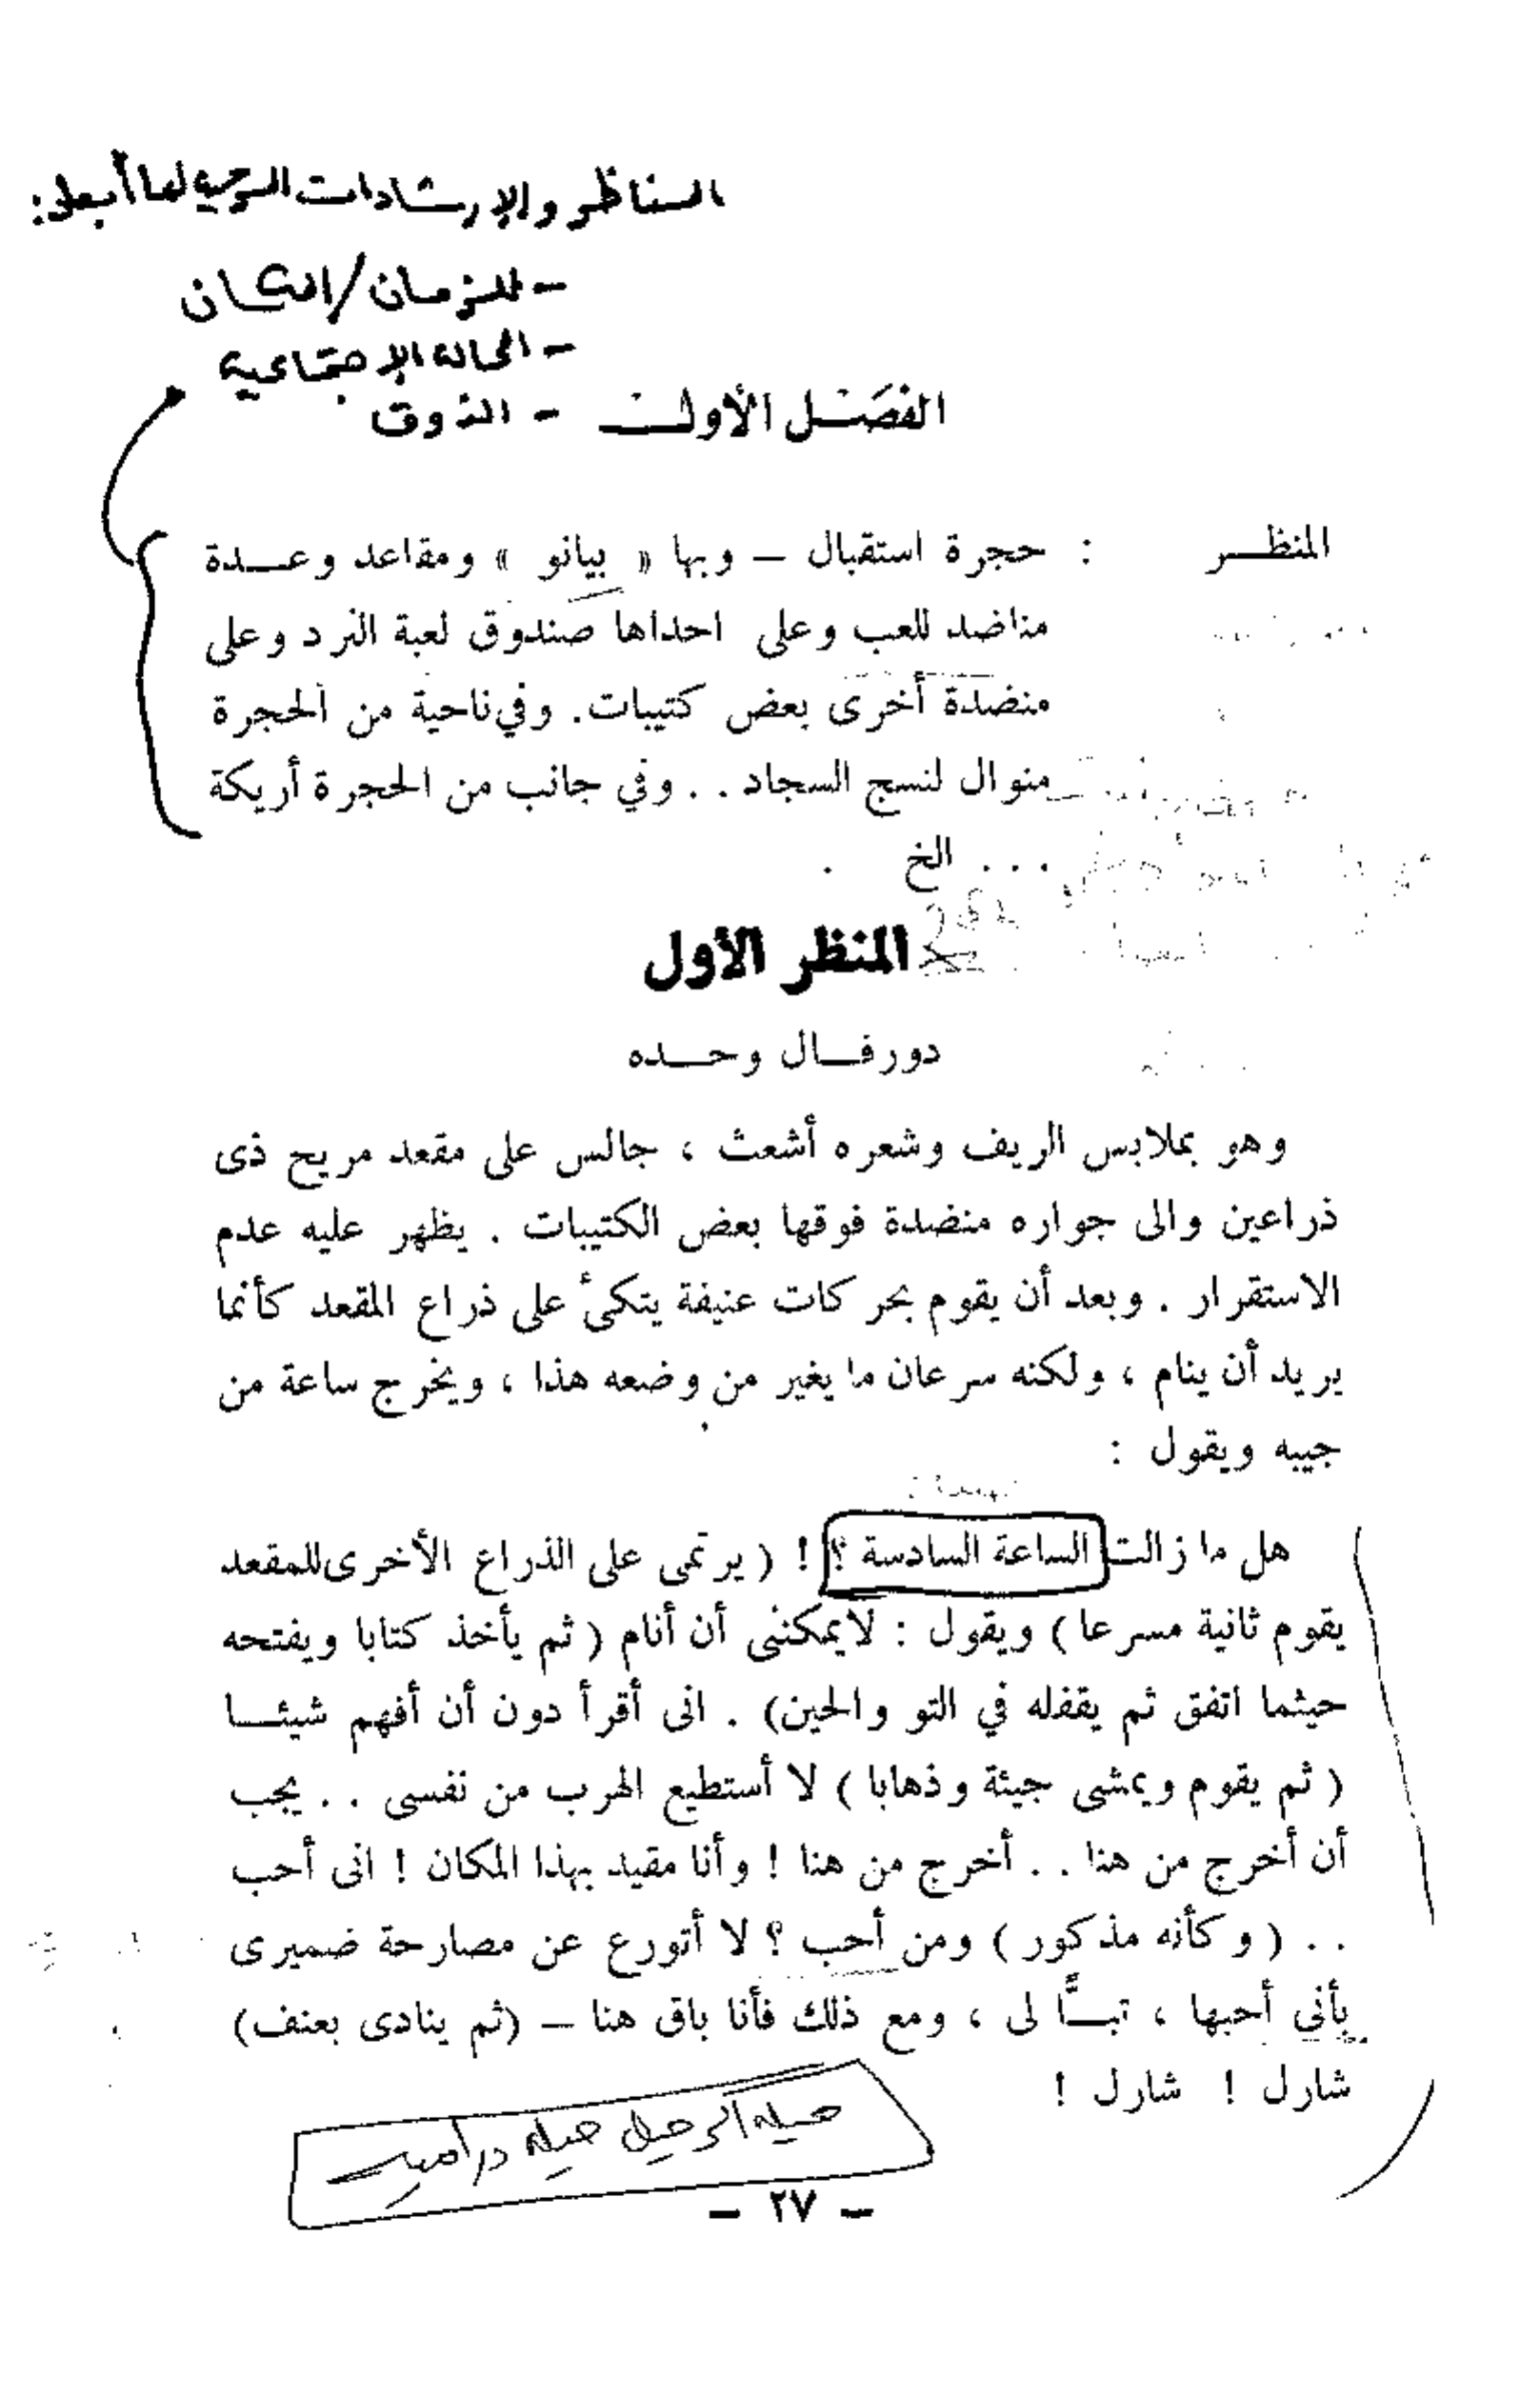 المناظر والإرشادات المسرحية لها أبعاد:
- الزمان/المكان
- الحالة الإجتماعية
- الذوق
الفصل الأول
المنظر : حجرة استقبال – وبها « بيانو » ومقاعد وعدة
مناضد للعب وعلى احداها صندوق لعبة النرد وعلى
منضدة أخرى بعض كتيبات. وفي ناحية من الحجرة
منوال لنسج السجاد . . وفي جانب من الحجرة أريكة
. . . الخ .
المنظر الأول
دورفال وحده
وهو بملابس الريف وشعره أشعث ، جالس على مقعد مريح ذى
ذراعين والى جواره منضدة فوقها بعض الكتيبات . يظهر عليه عدم
الاستقرار . وبعد أن يقوم بحركات عنيفة يتكئ على ذراع المقعد كأنما
يريد أن ينام ، ولكنه سرعان ما يغير من وضعه هذا ، ويخرج ساعة من
جيبه ويقول :
هل ما زالت الساعة السادسة ؟ ! ( يرتمى على الذراع الأخرى للمقعد
يقوم ثانية مسرعا ) ويقول : لايمكننى أن أنام ( ثم يأخذ كتابا ويفتحه
حيثما اتفق ثم يقفله في التو والحين) . انى أقرأ دون أن أفهم شيئا
( ثم يقوم ويمشى جيئة وذهابا ) لا أستطيع الهرب من نفسى . . يجب
أن أخرج من هنا . . أخرج من هنا ! وأنا مقيد بهذا المكان ! انى أحب
. . ( وكأنه مذكور ) ومن أحب ؟ لا أتورع عن مصارحة ضميرى
بأنى أحبها ، تبًّا لى ، ومع ذلك فأنا باق هنا – (ثم ينادى بعنف)
شارل ! شارل !
حيلة الرحيل حيلة درامية
– ٢٧ –